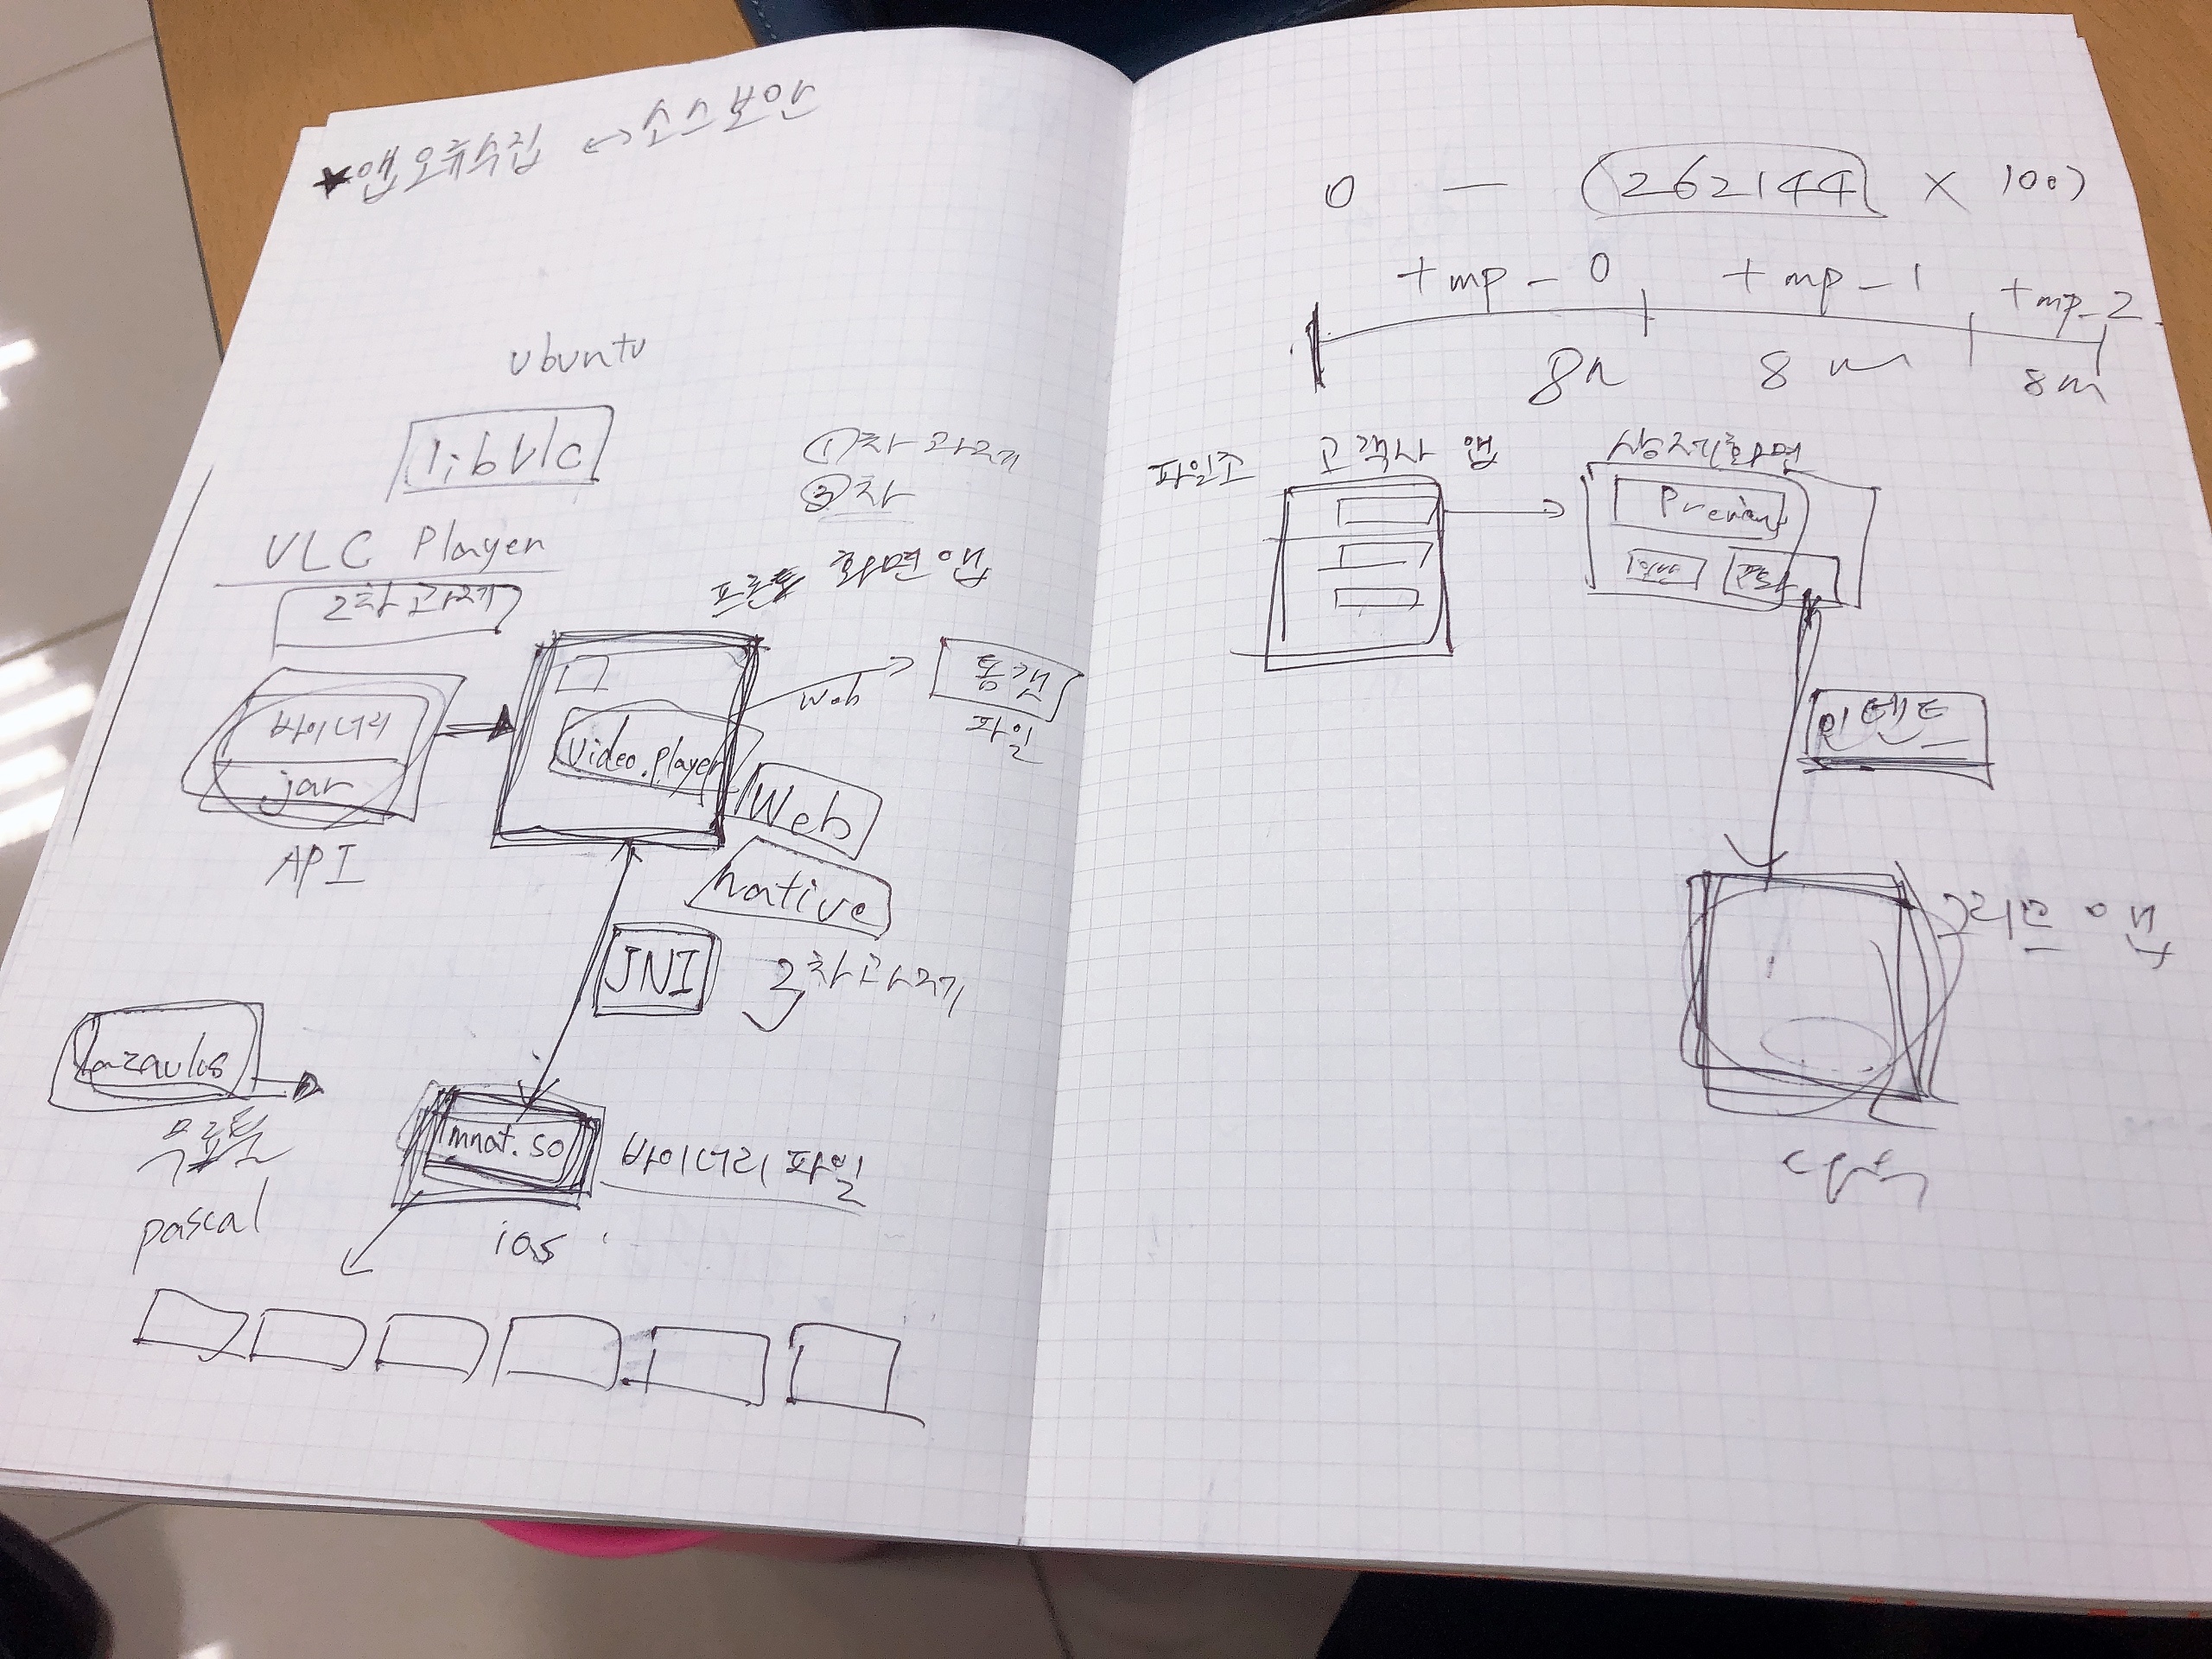 ★앱오류수집 ↔ 소스보안
ubuntu
libVlc
①차 과제
②차
VLC Player
2차과제
프론트 화면앱
바이너리
jar
API
video.player
web
동영
파일
Web
native
JNI
3차과제
lazaulos
무료툴
pascal
mnat.so
바이너리 파일
ios
0 - (262144 × 100)
tmp_0 tmp_1 tmp_2
8m 8m 8m
파일조
고객사 앱
상세화면
Preview
일반
인텐트
그리드 앱